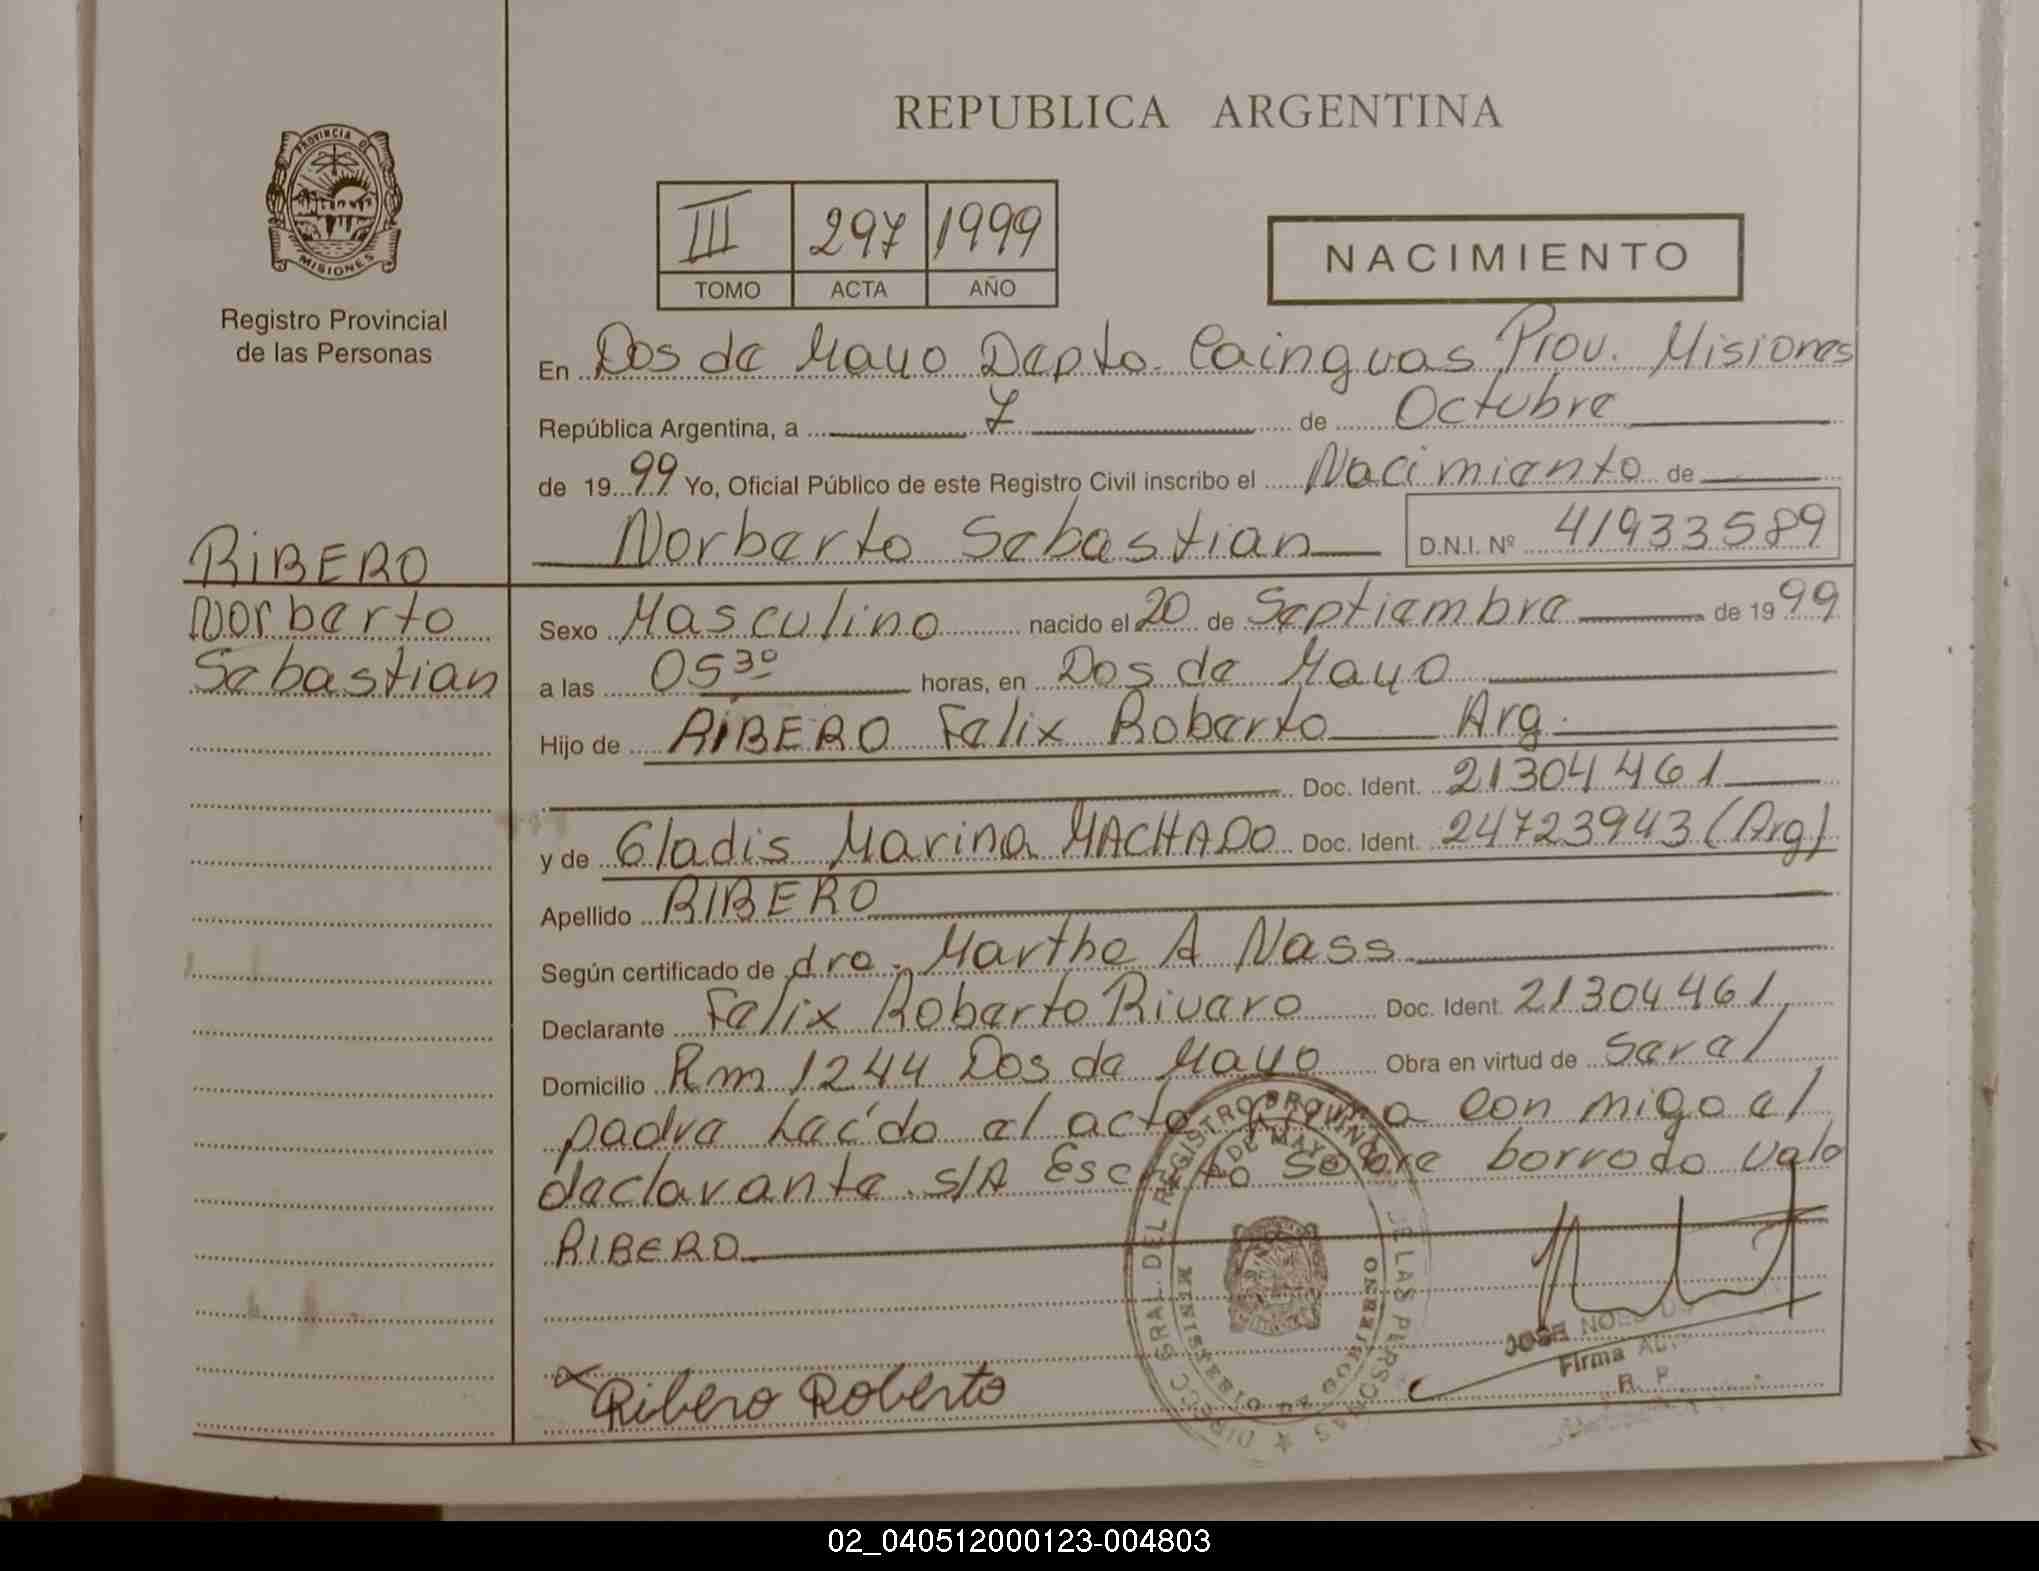 REPUBLICA ARGENTINA
PROVINCIA DE
MISIONES
Registro Provincial
de las Personas
III 297 1999
TOMO ACTA AÑO
NACIMIENTO
En Dos de Mayo Depto. Cainguas Prov. Misiones
República Argentina, a 7 de Octubre
de 1999 Yo, Oficial Público de este Registro Civil inscribo el Nacimiento de
Norberto Sebastian D.N.I. Nº 41933589
RIBERO
Norberto
Sebastian
Sexo Masculino nacido el 20 de Septiembre de 1999
a las 05 30 horas, en Dos de Mayo
Hijo de RIBERO Felix Roberto Arg.
Doc. Ident. 21304461
y de Gladis Marina MACHADO Doc. Ident. 24723943 (Arg)
Apellido RIBERO
Según certificado de dra. Martha A Nass
Declarante Felix Roberto Rivero Doc. Ident. 21304461
Domicilio Km 1244 Dos de Mayo Obra en virtud de Seral
padre Leído el acto firma con migo el
declarante s/A Escrito sobre borrado vale
RIBERO
DIRECC GRAL. DEL REGISTRO PROVINCIAL DE LAS PERSONAS
DE MAYO
MINISTERIO DE GOBIERNO
JOSE NOE
Firma
R. P.
Ribero Roberto
02_040512000123-004803